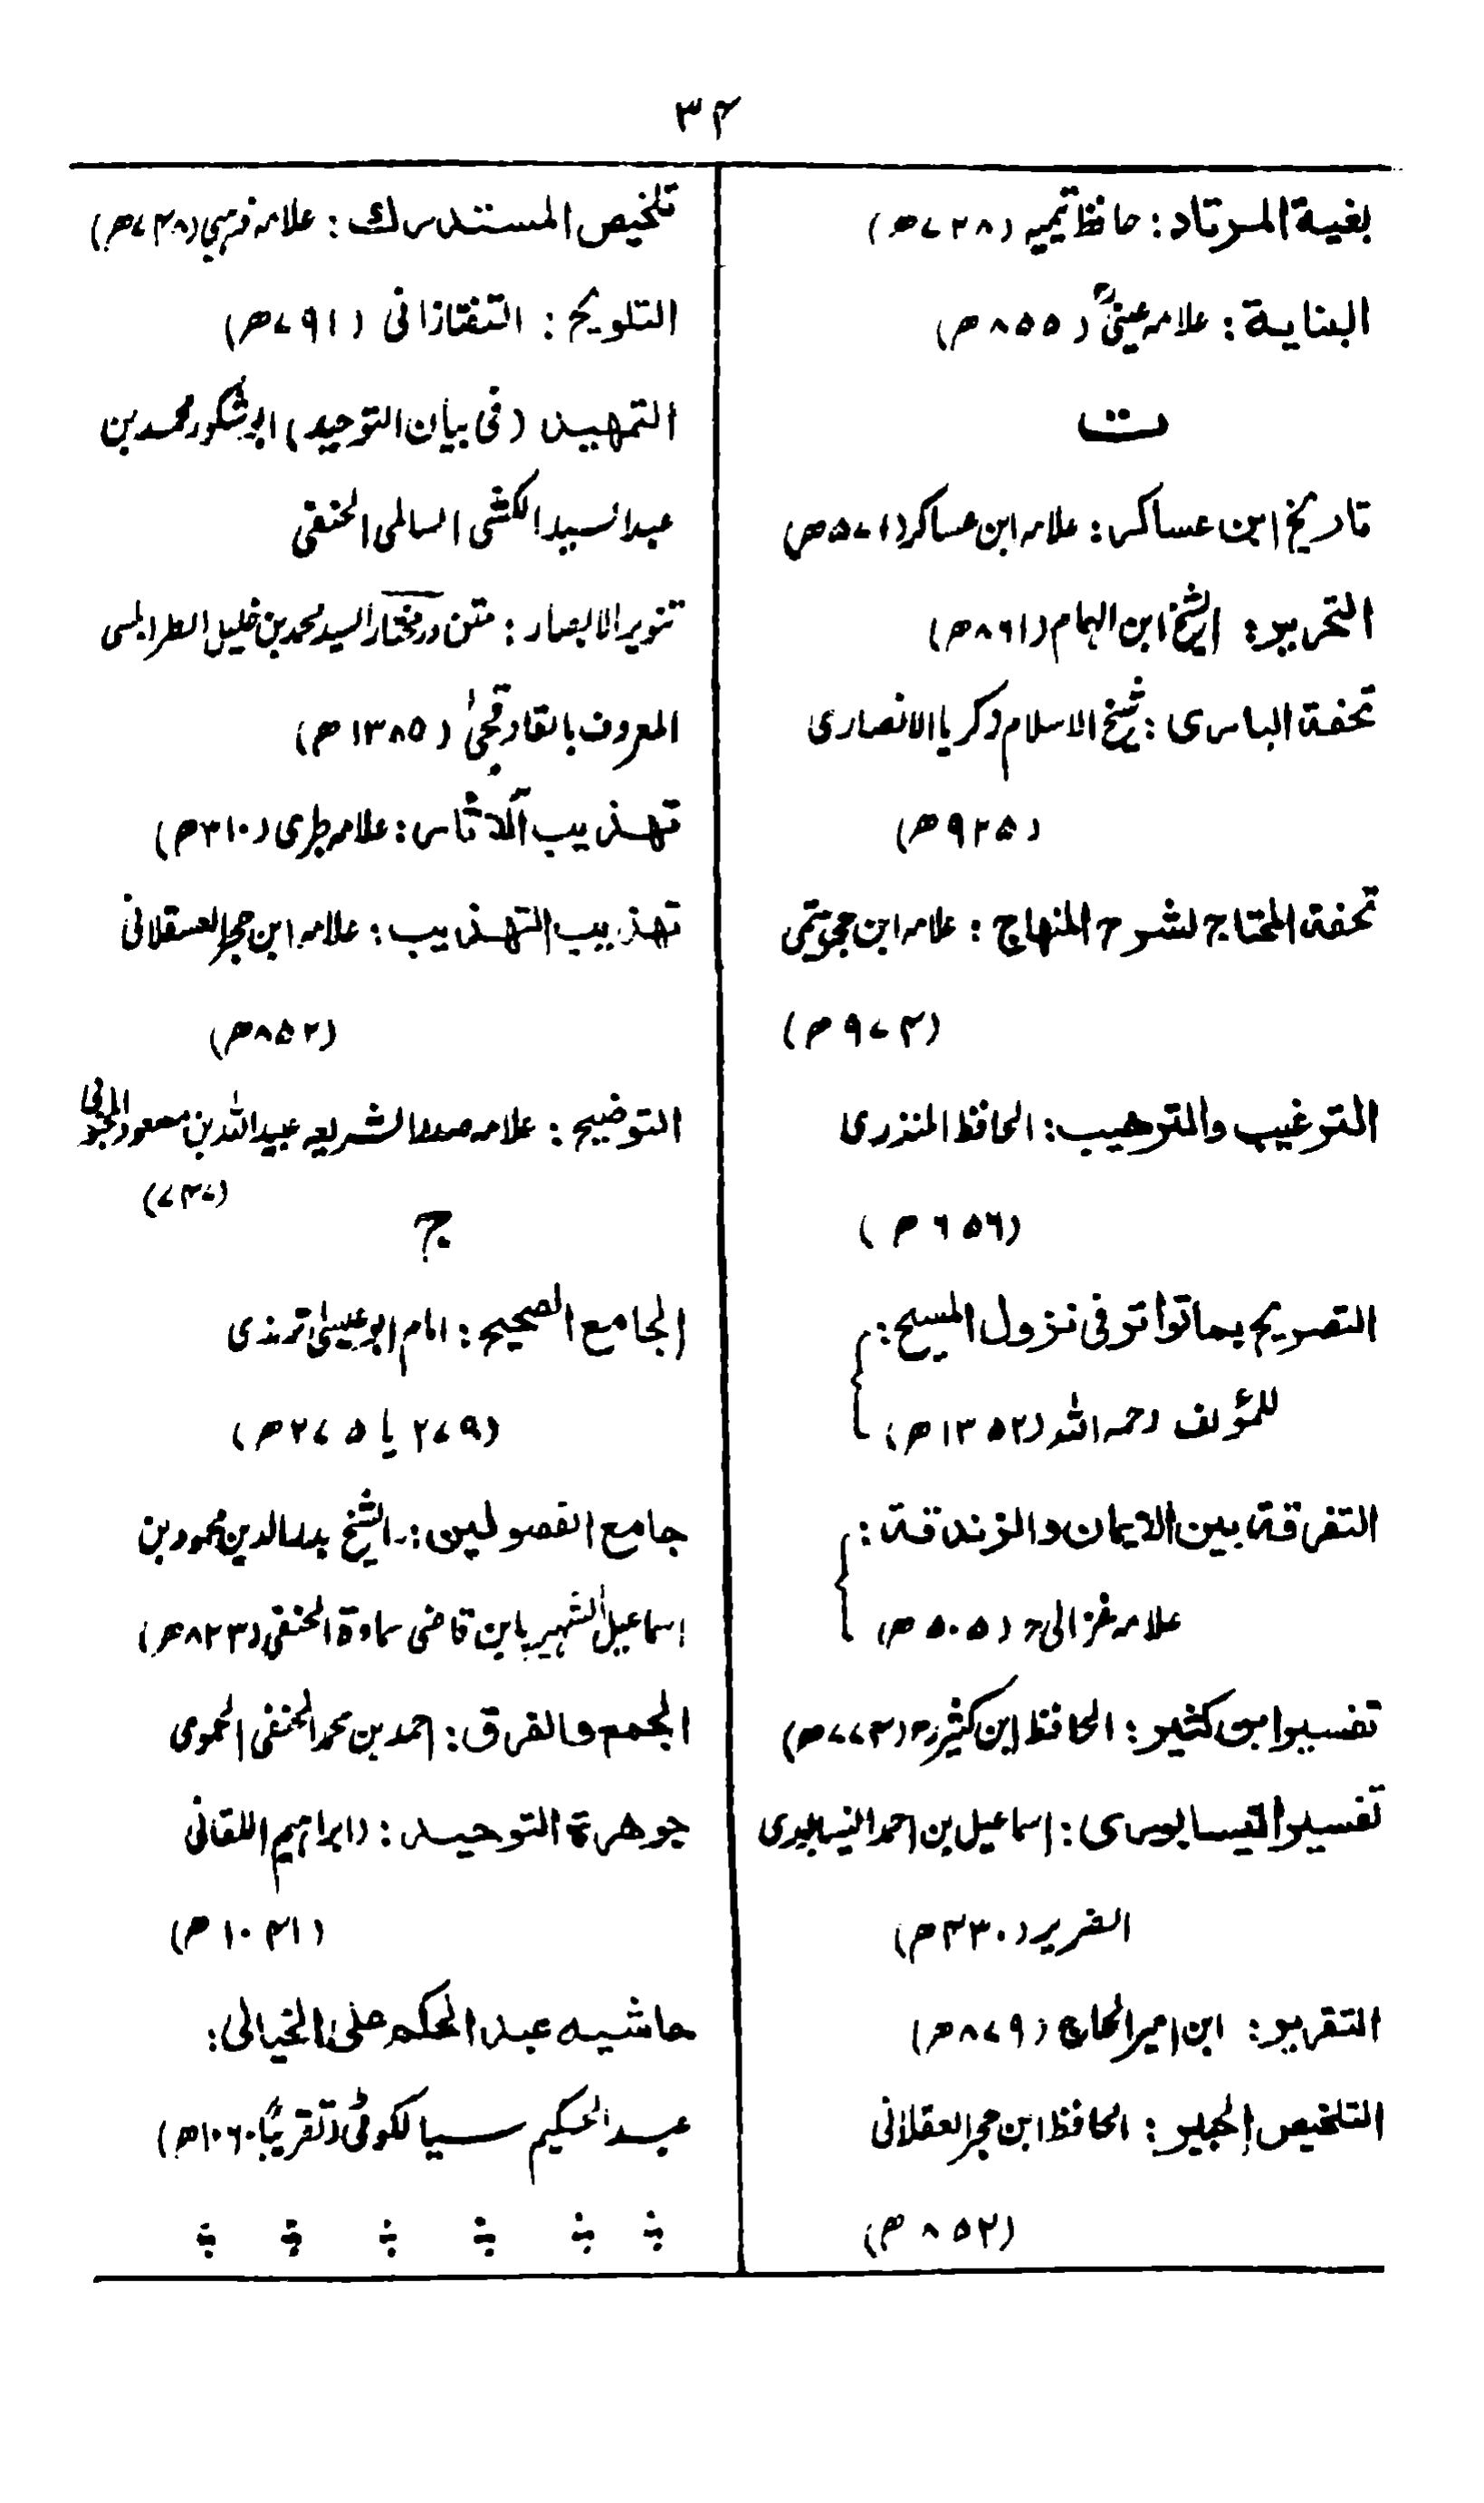 ۳۲
بغية المرتاد: حافظ تیمیہ (۷۲۸ھ)
البناية: علامہ عینیؒ (۸۵۵ھ)
ت
تاریخ ابن عساکر: علامہ ابن عساکر (۵۷۱ھ)
التحریر: الشیخ ابن الہمام (۸۶۱ھ)
تحفۃ الباری: شیخ الاسلام زکریا الانصاری
(۹۲۵ھ)
تحفۃ المحتاج لشرح المنہاج: علامہ ابن حجر
(۹۷۴ھ)
الترغیب والترھیب: الحافظ المنذری
(۶۵۶ھ)
التصریح بما تواتر فی نزول المسیح:
للمؤلف رحمہ اللہ (۱۳۵۲ھ)
التفرقۃ بین الایمان والزندقۃ:
علامہ غزالیؒ (۵۰۵ھ)
تفسیر ابن کثیر: الحافظ ابن کثیرؒ (۷۷۴ھ)
تفسیر النیسابوری: اسماعیل بن احمد النیسابوری
الضریر (۴۳۰ھ)
التقریر: ابن امیر الحاج (۸۷۹ھ)
التلخیص الحبیر: الحافظ ابن حجر العقلانی
(۸۵۲ھ)
تلخیص المستدرک: علامہ ذہبی (۷۴۸ھ)
التلویح: التفتازانی (۷۹۱ھ)
التمہید (فی بیان التوحید) ابو شکور محمد بن
عبد السید الکشی السالمی الحنفی
تنویر الابصار: متن درمختار السید محمد بن خلیل الطرابلسی
المعروف بالقاوقجیٰ (۱۳۸۵ھ)
تہذیب الآثار: علامہ طبری (۳۱۰ھ)
تہذیب التہذیب: علامہ ابن حجر العسقلانی
(۸۵۲ھ)
التوضیح: علامہ صدر الشریعہ عبید اللہ بن مسعود المحبوبی
ج
الجامع الصحیح: امام ابو عیسیٰ ترمذی
(۲۷۹ یا ۲۷۵ھ)
جامع الفصولین: الشیخ بدر الدین محمود بن
اسماعیل الشہیر بابن قاضی سماوۃ الحنفی (۸۲۳ھ)
الجمع والفرق: احمد بن محمد الحنفی الحموی
جوھرۃ التوحید: (ابراہیم اللقانی
(۱۰۴۱ھ)
حاشیہ عبد الحکیم علی الخیالی:
عبد الحکیم سیالکوٹی (تقریبًا ۱۰۶۰ھ)